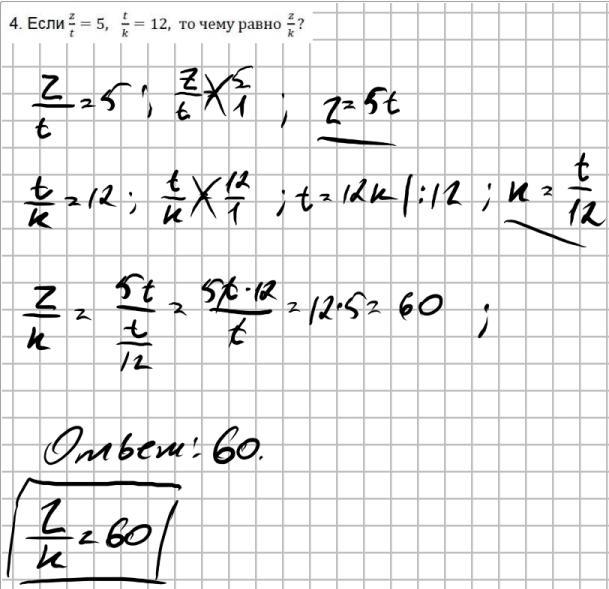 4. Если z/t = 5, t/k = 12, то чему равно z/k?
z/t = 5; z/t 5/1; z = 5t
t/k = 12; t/k 12/1; t = 12k |:12; k = t/12
z/k = 5t/(t/12) = 5t·12/t = 12·5 = 60;
Ответ: 60.
z/k = 60